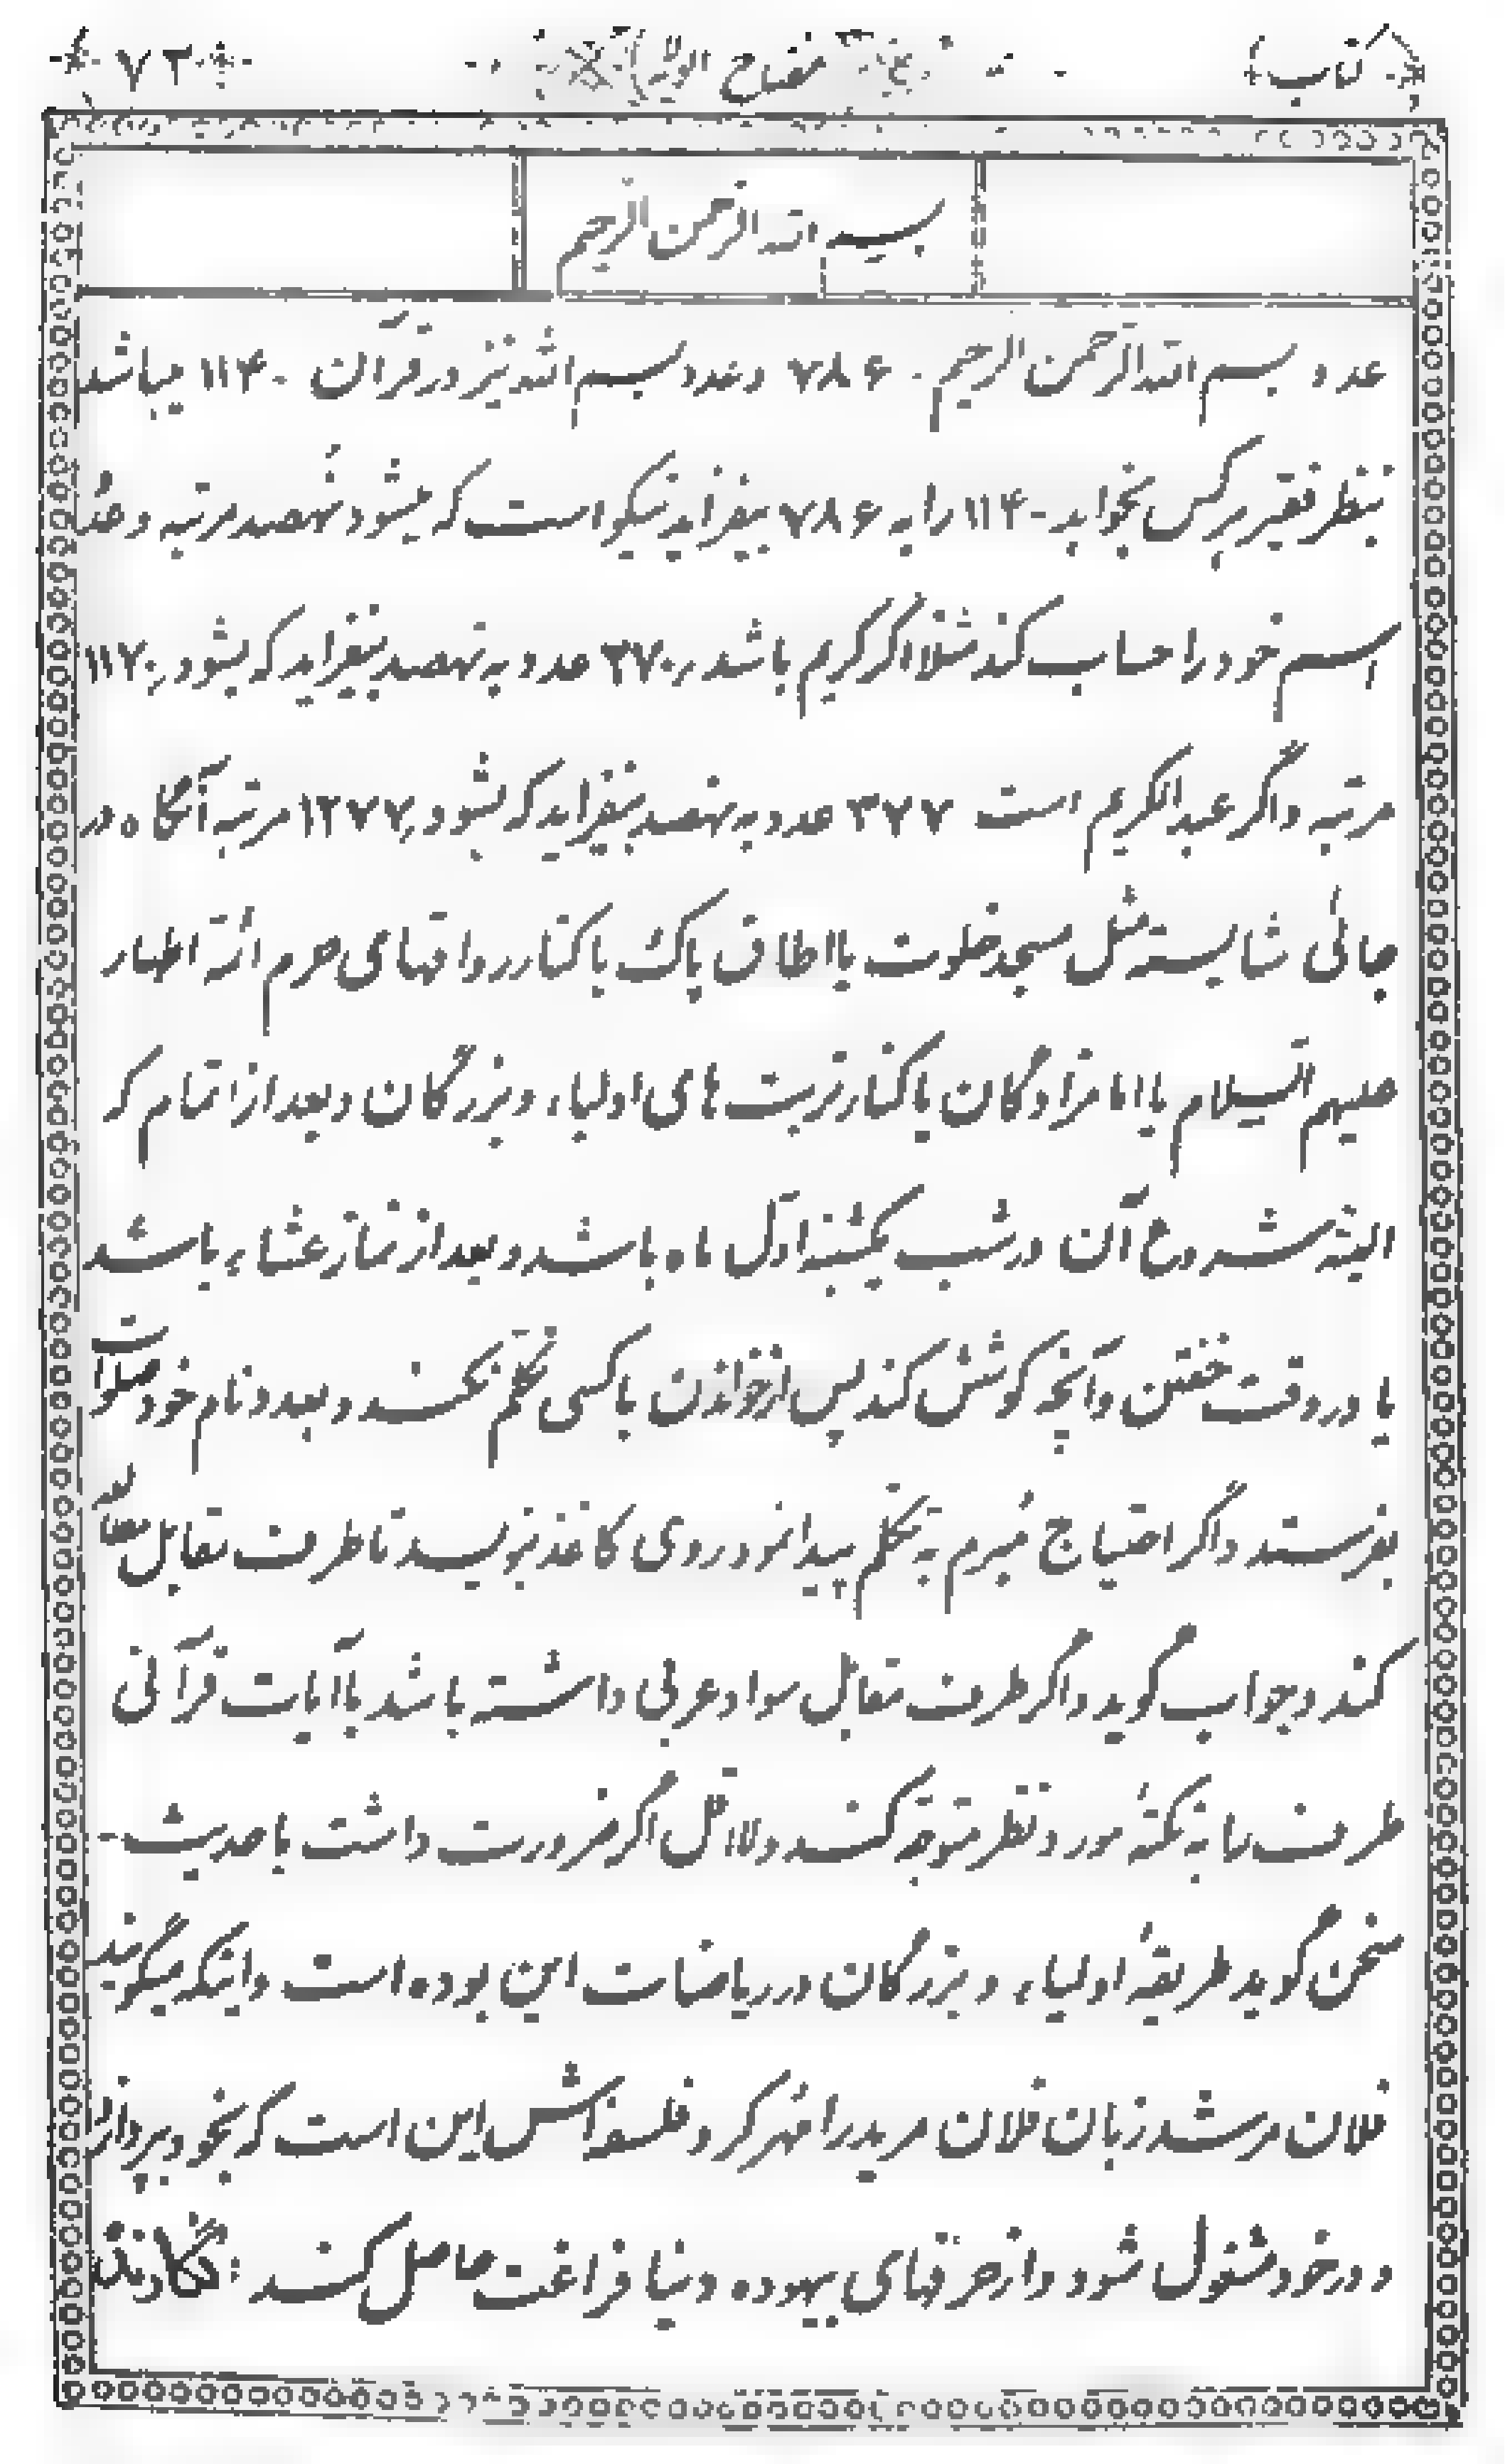 کتاب مفتاح الولایه ۷۲
بسم الله الرحمن الرحیم
عدد بسم الله الرحمن الرحیم ۷۸۶ و عدد بسم الله نیز در قرآن ۱۱۴ میباشد
بنظر فقیر هر کس بخواهد ۱۱۴ را به ۷۸۶ بیفزاید نیکو است که میشود نهصد مرتبه و عدد
اسم خود را حساب کند مثلا اگر کریم باشد ۲۷۰ عدد به نهصد بیفزاید که بشود ۱۱۷۰
مرتبه و اگر عبدالکریم است ۳۷۷ عدد به نهصد بیفزاید که بشود ۱۲۷۷ مرتبه آنگاه در
جائی شایسته مثل مسجد خلوت یا اطاق پاک یا کنار رواقهای حرم ائمه اطهار
علیهم السلام یا امامزادگان یا کنار تربت های اولیاء و بزرگان و بعد از اتمام که
البته شروع آن در شب یکشنبه اول ماه باشد و بعد از نماز عشاء باشد
یا در وقت خفتن و آنچه کوشش کند پس از خواندن با کسی تکلم نکند و بعدد نام خود صلوات
بفرستد و اگر احتیاج مبرم به تکلم پیدا نمود روی کاغذ بنویسد تا طرف مقابل
کند و جواب گوید و اگر طرف مقابل سواد عربی داشته باشد با آیات قرآنی
طرف را به نکتهٔ مورد نظر متوجه کند و لااقل اگر ضرورت داشت با حدیث -
سخن گوید طریقهٔ اولیاء و بزرگان در ریاضات این بوده است و اینکه میگویند
فلان مرشد زبان فلان مرید را مهر کرد فلسفه اش این است که بخود پردازد
و در خود مشغول شود و از حرفهای بیهوده دنیا فراغت حاصل کند :